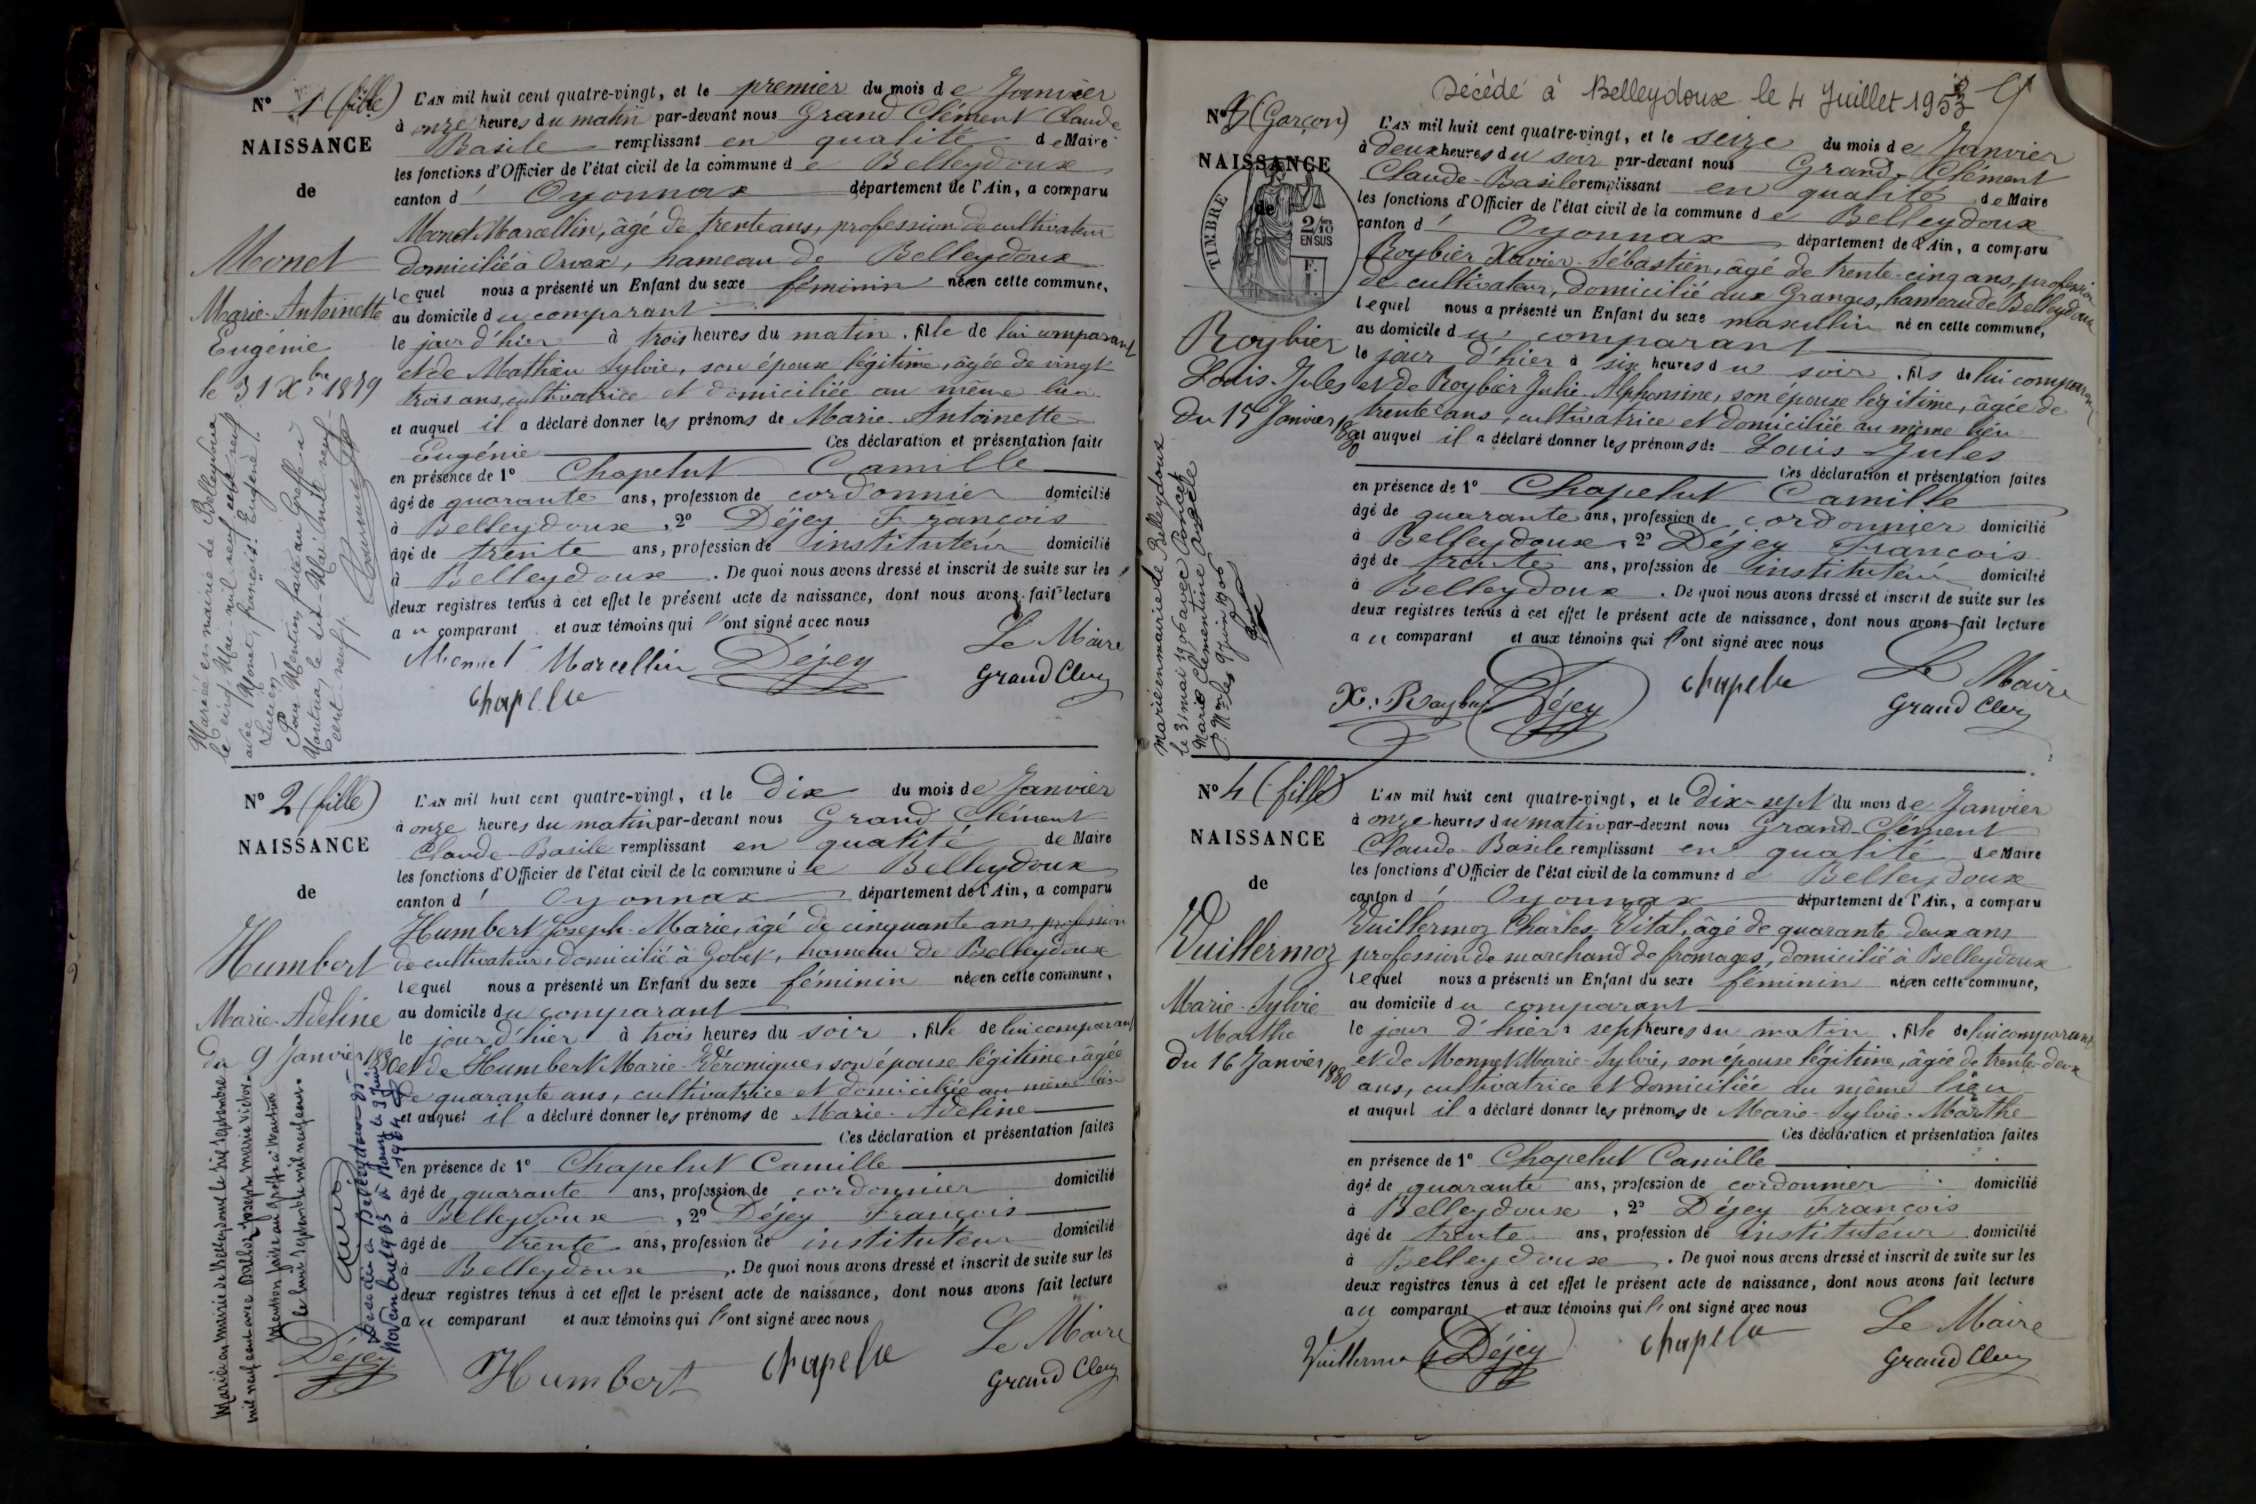 N° 1 (fille)
NAISSANCE
de
Monet
Marie-Antoinette
Eugénie
le 31 Xbre 1879
Mariée en mairie de Belleydoux
le cinq Mai mil neuf cent neuf
avec Monet, françois. Eugène.
Lucien
Pour Mention faite au Greffe à
Nantua, le sept Mai mil neuf
cent neuf.
L'AN mil huit cent quatre-vingt, et le premier du mois de Janvier
à onze heures du matin par-devant nous Grand Clément Claude
Basile remplissant en qualité de Maire
les fonctions d'Officier de l'état civil de la commune de Belleydoux
canton d' Oyonnax département de l'Ain, a comparu
Monet Marcellin, âgé de trente ans, profession de cultivateur
domicilié à Orvax, hameau de Belleydoux
lequel nous a présenté un Enfant du sexe féminin née en cette commune,
au domicile du comparant
le jour d'hier à trois heures du matin, fille de lui comparant
et de Mathieu Sylvie, son épouse légitime, âgée de vingt
trois ans, cultivatrice et domiciliée au même lieu
et auquel il a déclaré donner les prénoms de Marie-Antoinette
Eugénie Ces déclaration et présentation faite
en présence de 1° Chapelut Camille
âgé de quarante ans, profession de cordonnier domicilié
à Belleydoux, 2° Déjey François
âgé de trente ans, profession de instituteur domicilié
à Belleydoux. De quoi nous avons dressé et inscrit de suite sur les
deux registres tenus à cet effet le présent acte de naissance, dont nous avons fait lecture
au comparant et aux témoins qui l'ont signé avec nous
Monnet Marcellin Déjey Le Maire
Chapelu Grand Clem
N° 2 (fille)
NAISSANCE
de
Humbert
Marie-Adeline
du 9 Janvier 1880
Mariée en mairie de Belleydoux le six septembre
mil neuf cent avec Ballet Joseph Marie Victor.
Mention faite au greffe à Nantua
le huit septembre mil neuf cent
Déjey
L'AN mil huit cent quatre-vingt, et le Dix du mois de Janvier
à onze heures du matin par-devant nous Grand Clément
Claude-Basile remplissant en qualité de Maire
les fonctions d'Officier de l'état civil de la commune de Belleydoux
canton d' Oyonnax département de l'Ain, a comparu
Humbert Joseph-Marie, âgé de cinquante ans, profession
de cultivateur, domicilié à Gobet, hameau de Belleydoux
lequel nous a présenté un Enfant du sexe féminin née en cette commune,
au domicile du comparant
le jour d'hier à trois heures du soir, fille de lui comparant
et de Humbert Marie-Véronique, son épouse légitime, âgée
de quarante ans, cultivatrice et domiciliée au même lieu
et auquel il a déclaré donner les prénoms de Marie-Adeline
Ces déclaration et présentation faites
en présence de 1° Chapelut Camille
âgé de quarante ans, profession de cordonnier domicilié
à Belleydoux, 2° Déjey François
âgé de trente ans, profession de instituteur domicilié
à Belleydoux. De quoi nous avons dressé et inscrit de suite sur les
deux registres tenus à cet effet le présent acte de naissance, dont nous avons fait lecture
au comparant et aux témoins qui l'ont signé avec nous
Humbert Chapelu Le Maire
Grand Clem
Décédé à Belleydoux le 4 Juillet 1953
N° 3 (Garçon)
NAISSANCE
de
TIMBRE
2/10
EN SUS
F.
Roybier
Louis-Jules
Du 15 Janvier 1880
Marié en mairie de Belleydoux
le 31 mai 1906 avec Poncet
Marie Clémentine Angèle
P. Mon les 9 juin 1906
L'AN mil huit cent quatre-vingt, et le seize du mois de Janvier
à deux heures du soir par-devant nous Grand-Clément
Claude-Basile remplissant en qualité de Maire
les fonctions d'Officier de l'état civil de la commune de Belleydoux
canton d' Oyonnax département de l'Ain, a comparu
Roybier Xavier-Sébastien, âgé de trente-cinq ans, profession
de cultivateur, domicilié aux Granges, hameau de Belleydoux
lequel nous a présenté un Enfant du sexe masculin né en cette commune,
au domicile du comparant
le jour d'hier à six heures du soir, fils de lui comparant
et de Roybier Julie-Alphonsine, son épouse légitime, âgée de
trente ans, cultivatrice et domiciliée au même lieu
et auquel il a déclaré donner les prénoms de Louis-Jules
Ces déclaration et présentation faites
en présence de 1° Chapelut Camille
âgé de quarante ans, profession de cordonnier domicilié
à Belleydoux, 2° Déjey François
âgé de trente ans, profession de instituteur domicilié
à Belleydoux. De quoi nous avons dressé et inscrit de suite sur les
deux registres tenus à cet effet le présent acte de naissance, dont nous avons fait lecture
au comparant et aux témoins qui l'ont signé avec nous
X. Roybier Déjey Chapelu Le Maire
Grand Clem
N° 4 (fille)
NAISSANCE
de
Vuillermoz
Marie-Sylvie
Marthe
Du 16 Janvier 1880
L'AN mil huit cent quatre-vingt, et le Dix-sept du mois de Janvier
à onze heures du matin par-devant nous Grand-Clément
Claude-Basile remplissant en qualité de Maire
les fonctions d'Officier de l'état civil de la commune de Belleydoux
canton d' Oyonnax département de l'Ain, a comparu
Vuillermoz Charles-Vital, âgé de quarante deux ans
profession de marchand de fromages, domicilié à Belleydoux
lequel nous a présenté un Enfant du sexe féminin née en cette commune,
au domicile du comparant
le jour d'hier à sept heures du matin, fille de lui comparant
et de Monnet Marie-Sylvie, son épouse légitime, âgée de trente-deux
ans, cultivatrice et domiciliée au même lieu
et auquel il a déclaré donner les prénoms de Marie-Sylvie-Marthe
Ces déclaration et présentation faites
en présence de 1° Chapelut Camille
âgé de quarante ans, profession de cordonnier domicilié
à Belleydoux, 2° Déjey François
âgé de trente ans, profession de instituteur domicilié
à Belleydoux. De quoi nous avons dressé et inscrit de suite sur les
deux registres tenus à cet effet le présent acte de naissance, dont nous avons fait lecture
au comparant et aux témoins qui l'ont signé avec nous
Vuillermoz Déjey Chapelu Le Maire
Grand Clem